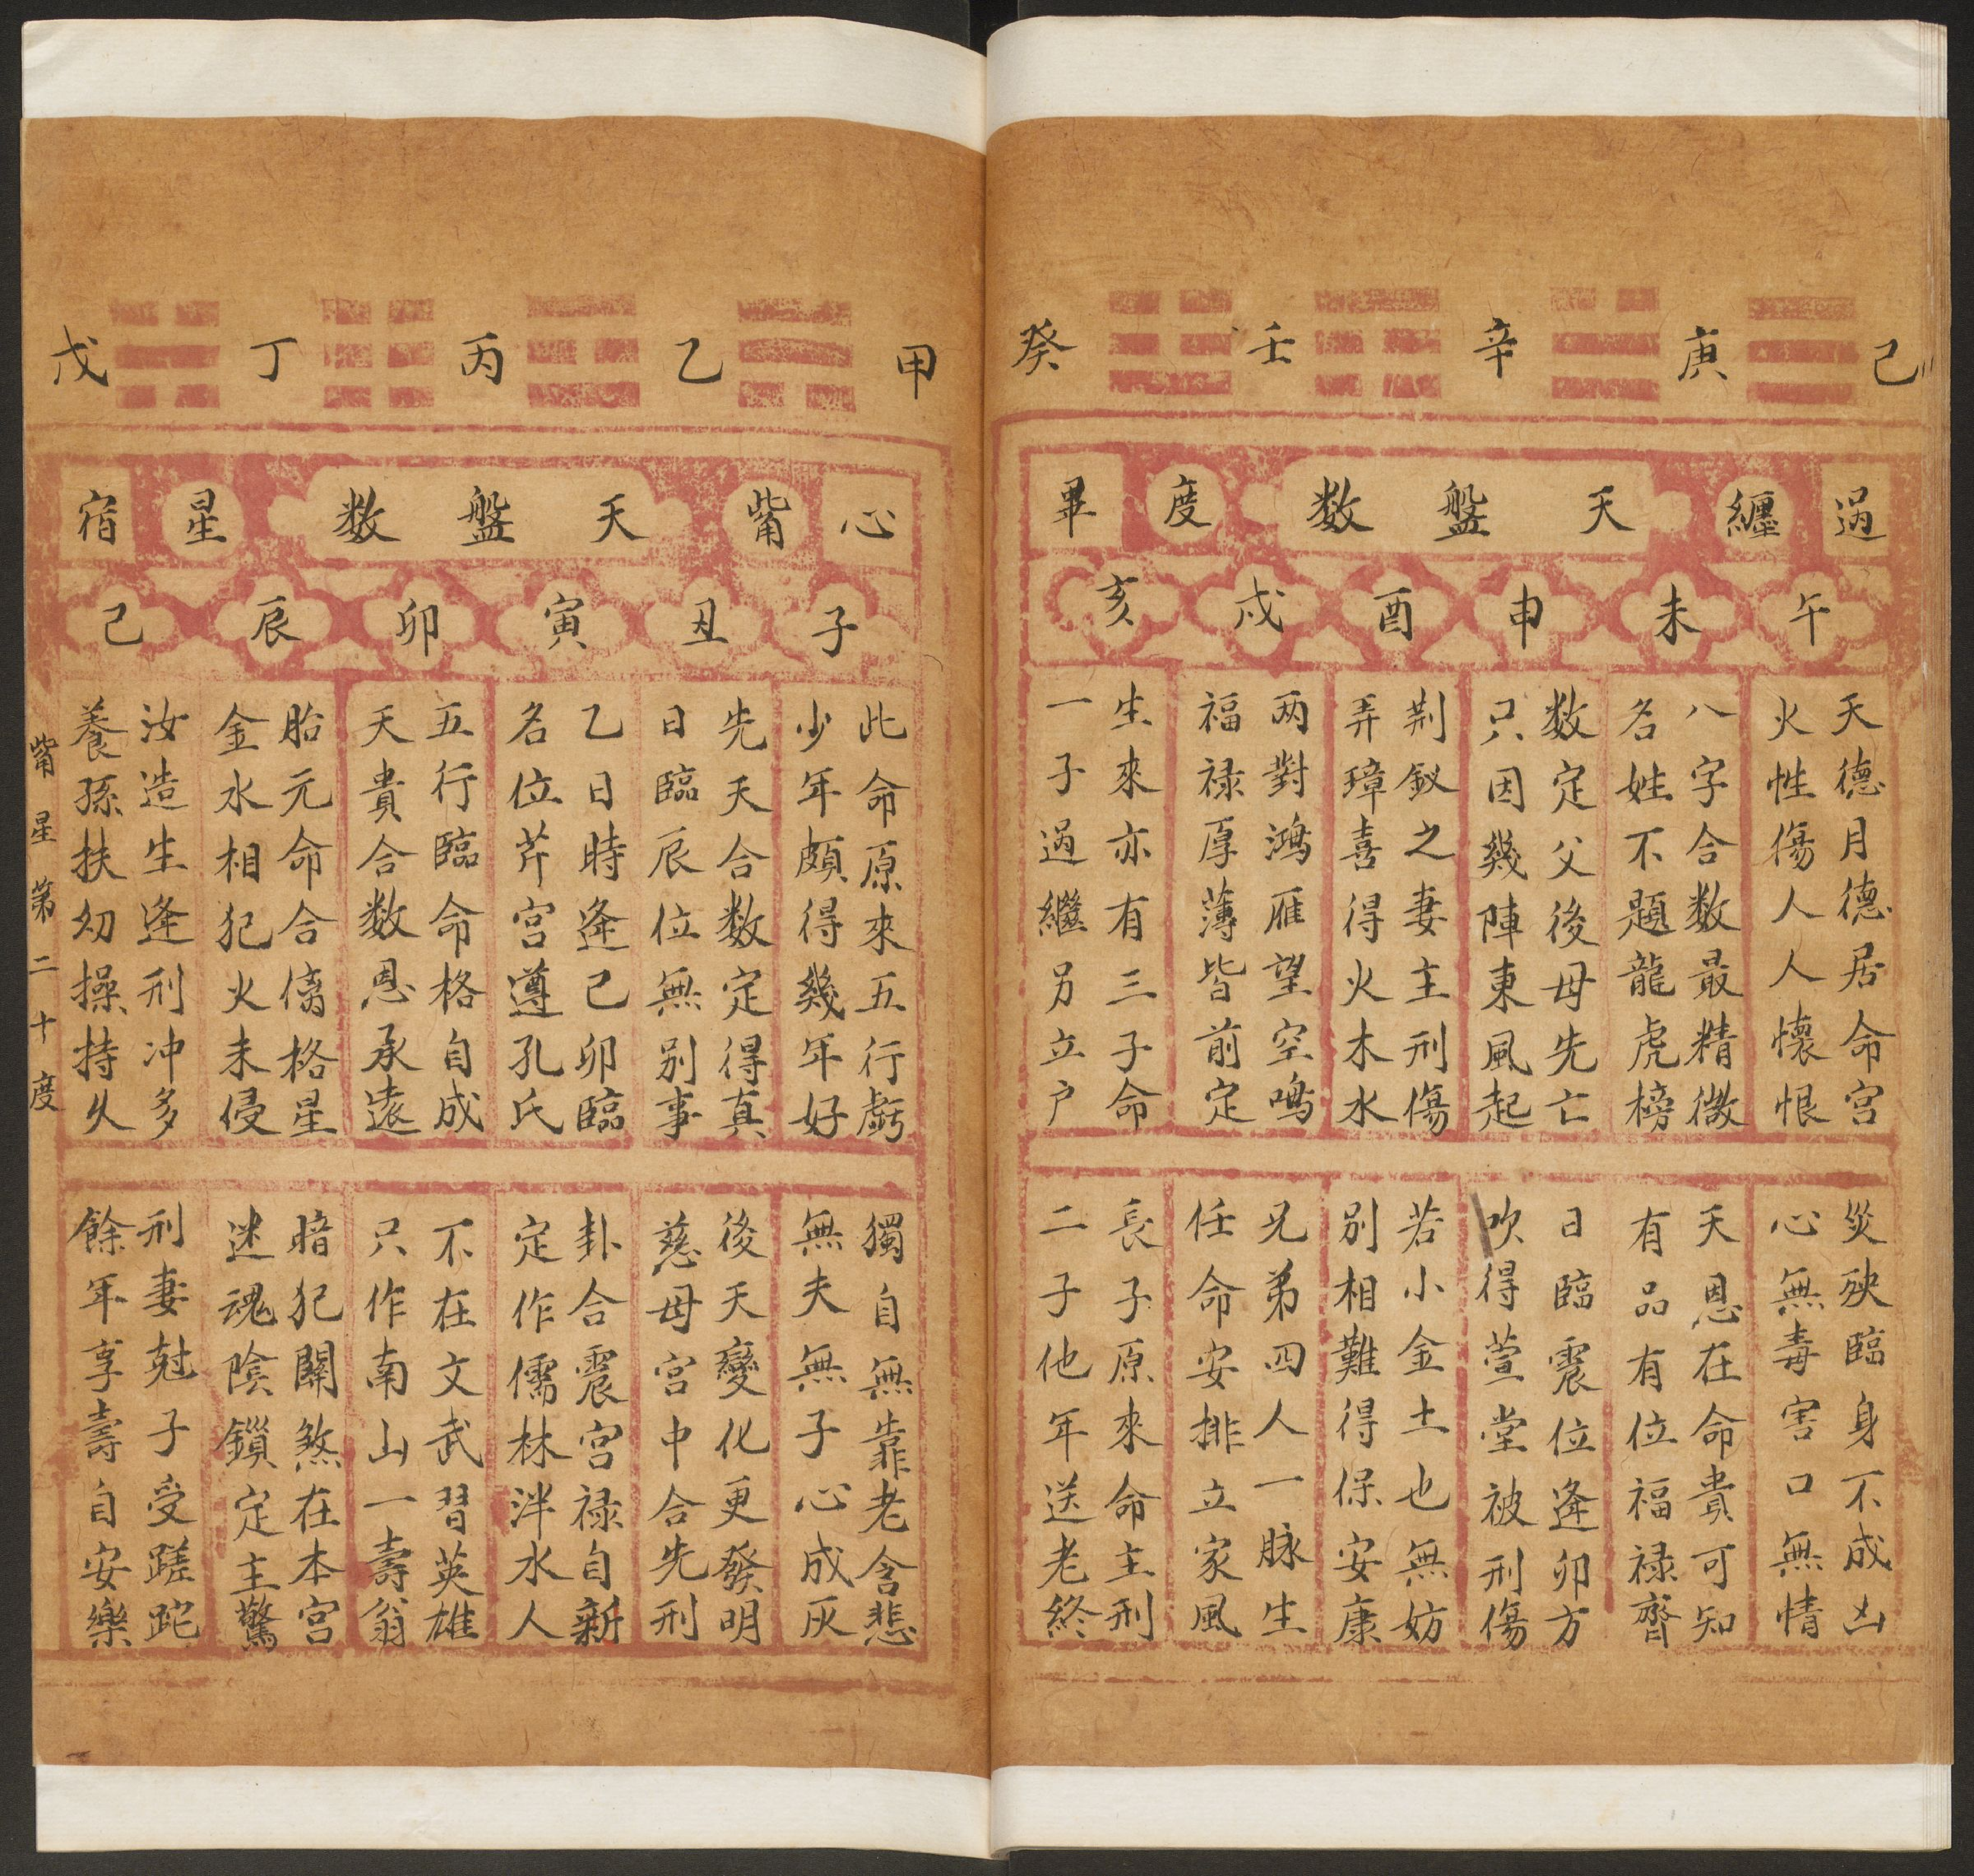 己 庚 辛 壬 癸
過 纏 天盤数 度 畢
午 未 申 酉 戌 亥
天德月德居命宮
火性傷人人懷恨
八字合数最精微
名姓不題龍虎榜
数定父後母先亡
只因幾陣東風起
荆釵之妻主刑傷
弄璋喜得火木水
两對鴻雁望空鳴
福禄厚薄皆前定
生來亦有三子命
一子過繼另立户
災殃臨身不成凶
心無毒害口無情
天恩在命貴可知
有品有位福禄齊
日臨震位逢卯方
吹得萱堂被刑傷
若小金土也無妨
別相難得保安康
兄弟四人一脉生
任命安排立家風
長子原來命主刑
二子他年送老終
甲 乙 丙 丁 戊
心 觜 天盤数 星 宿
子 丑 寅 卯 辰 己
此命原來五行虧
少年頗得幾年好
先天合数定得真
日臨辰位無别事
乙日時逢己卯臨
名位芹宮遵孔氏
五行臨命格自成
天貴合数恩承遠
胎元命合傷格星
金水相犯火未侵
汝造生逢刑冲多
養孫扶幼操持久
獨自無靠老含悲
無夫無子心成灰
後天變化更發明
慈母宮中合先刑
卦合震宮禄自新
定作儒林泮水人
不在文武習英雄
只作南山一壽翁
暗犯關煞在本宮
迷魂陰鎖定主驚
刑妻尅子受蹉跎
餘年享壽自安樂
觜星第二十度